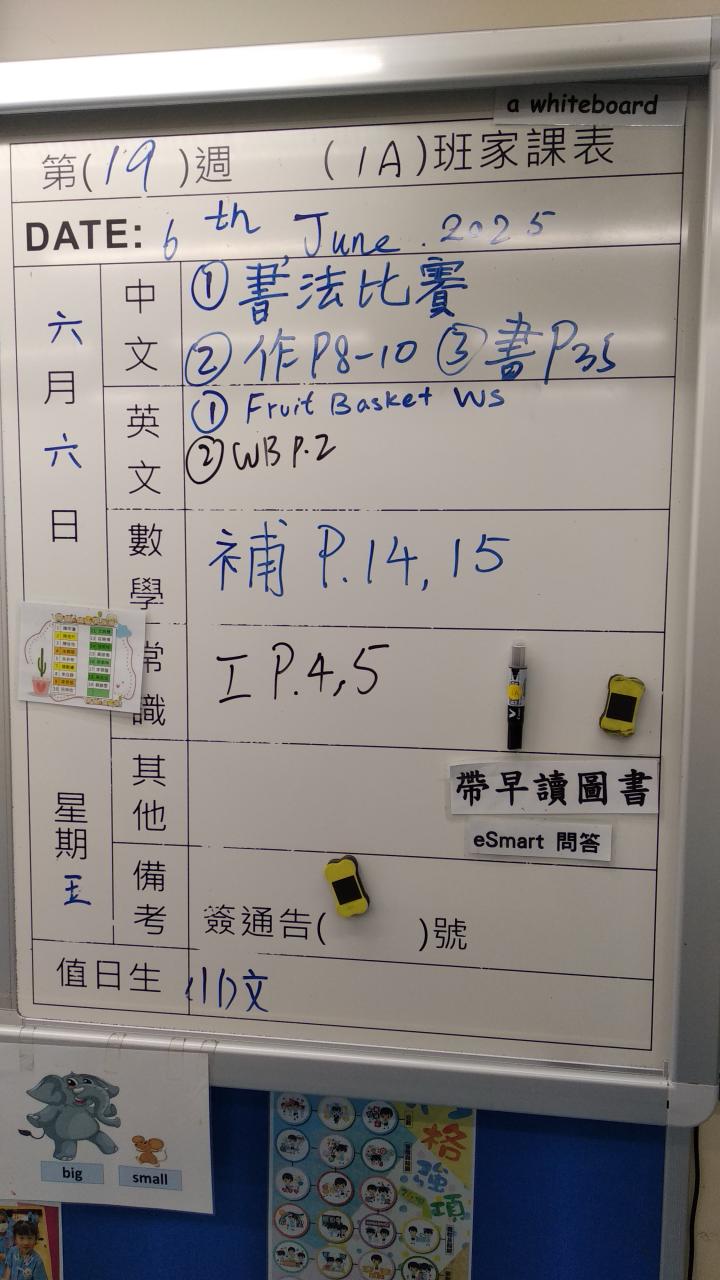 a whiteboard
第(19)週 (1A)班家課表
DATE: 6th June. 2025
六月六日
星期五
中文
①書法比賽
②作P8-10 ③書P35
英文
① Fruit Basket WS
② WB P.2
數學
補 P.14,15
常識
工 P.4,5
其他
帶早讀圖書
eSmart 問答
備考
簽通告( )號
值日生
(11)文
big
small
格
強
項